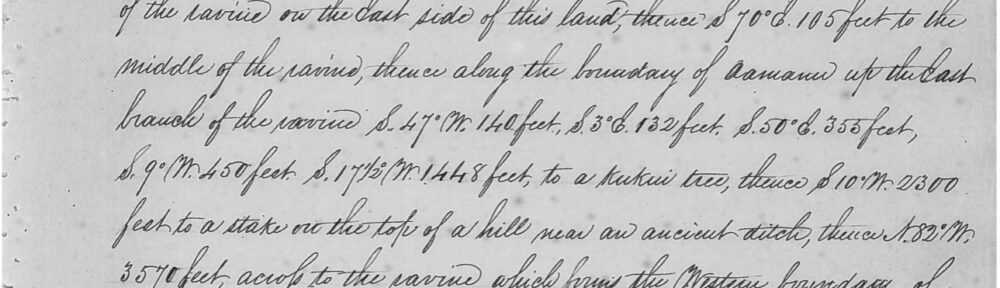 of the ravine on the East side of this land, thence S 70° E. 105 feet to the
middle of the ravine, thence along the boundary of Aamanu up the East
branch of the ravine S. 47° W. 140 feet, S. 3° E. 132 feet. S. 50° E. 355 feet,
S. 9° W. 450 feet. S. 17½° W. 1448 feet, to a Kukui tree, thence S 10° W. 2300
feet to a stake on the top of a hill near an ancient ditch, thence N. 82° W.
3570 feet, across to the ravine which forms the Western boundary of